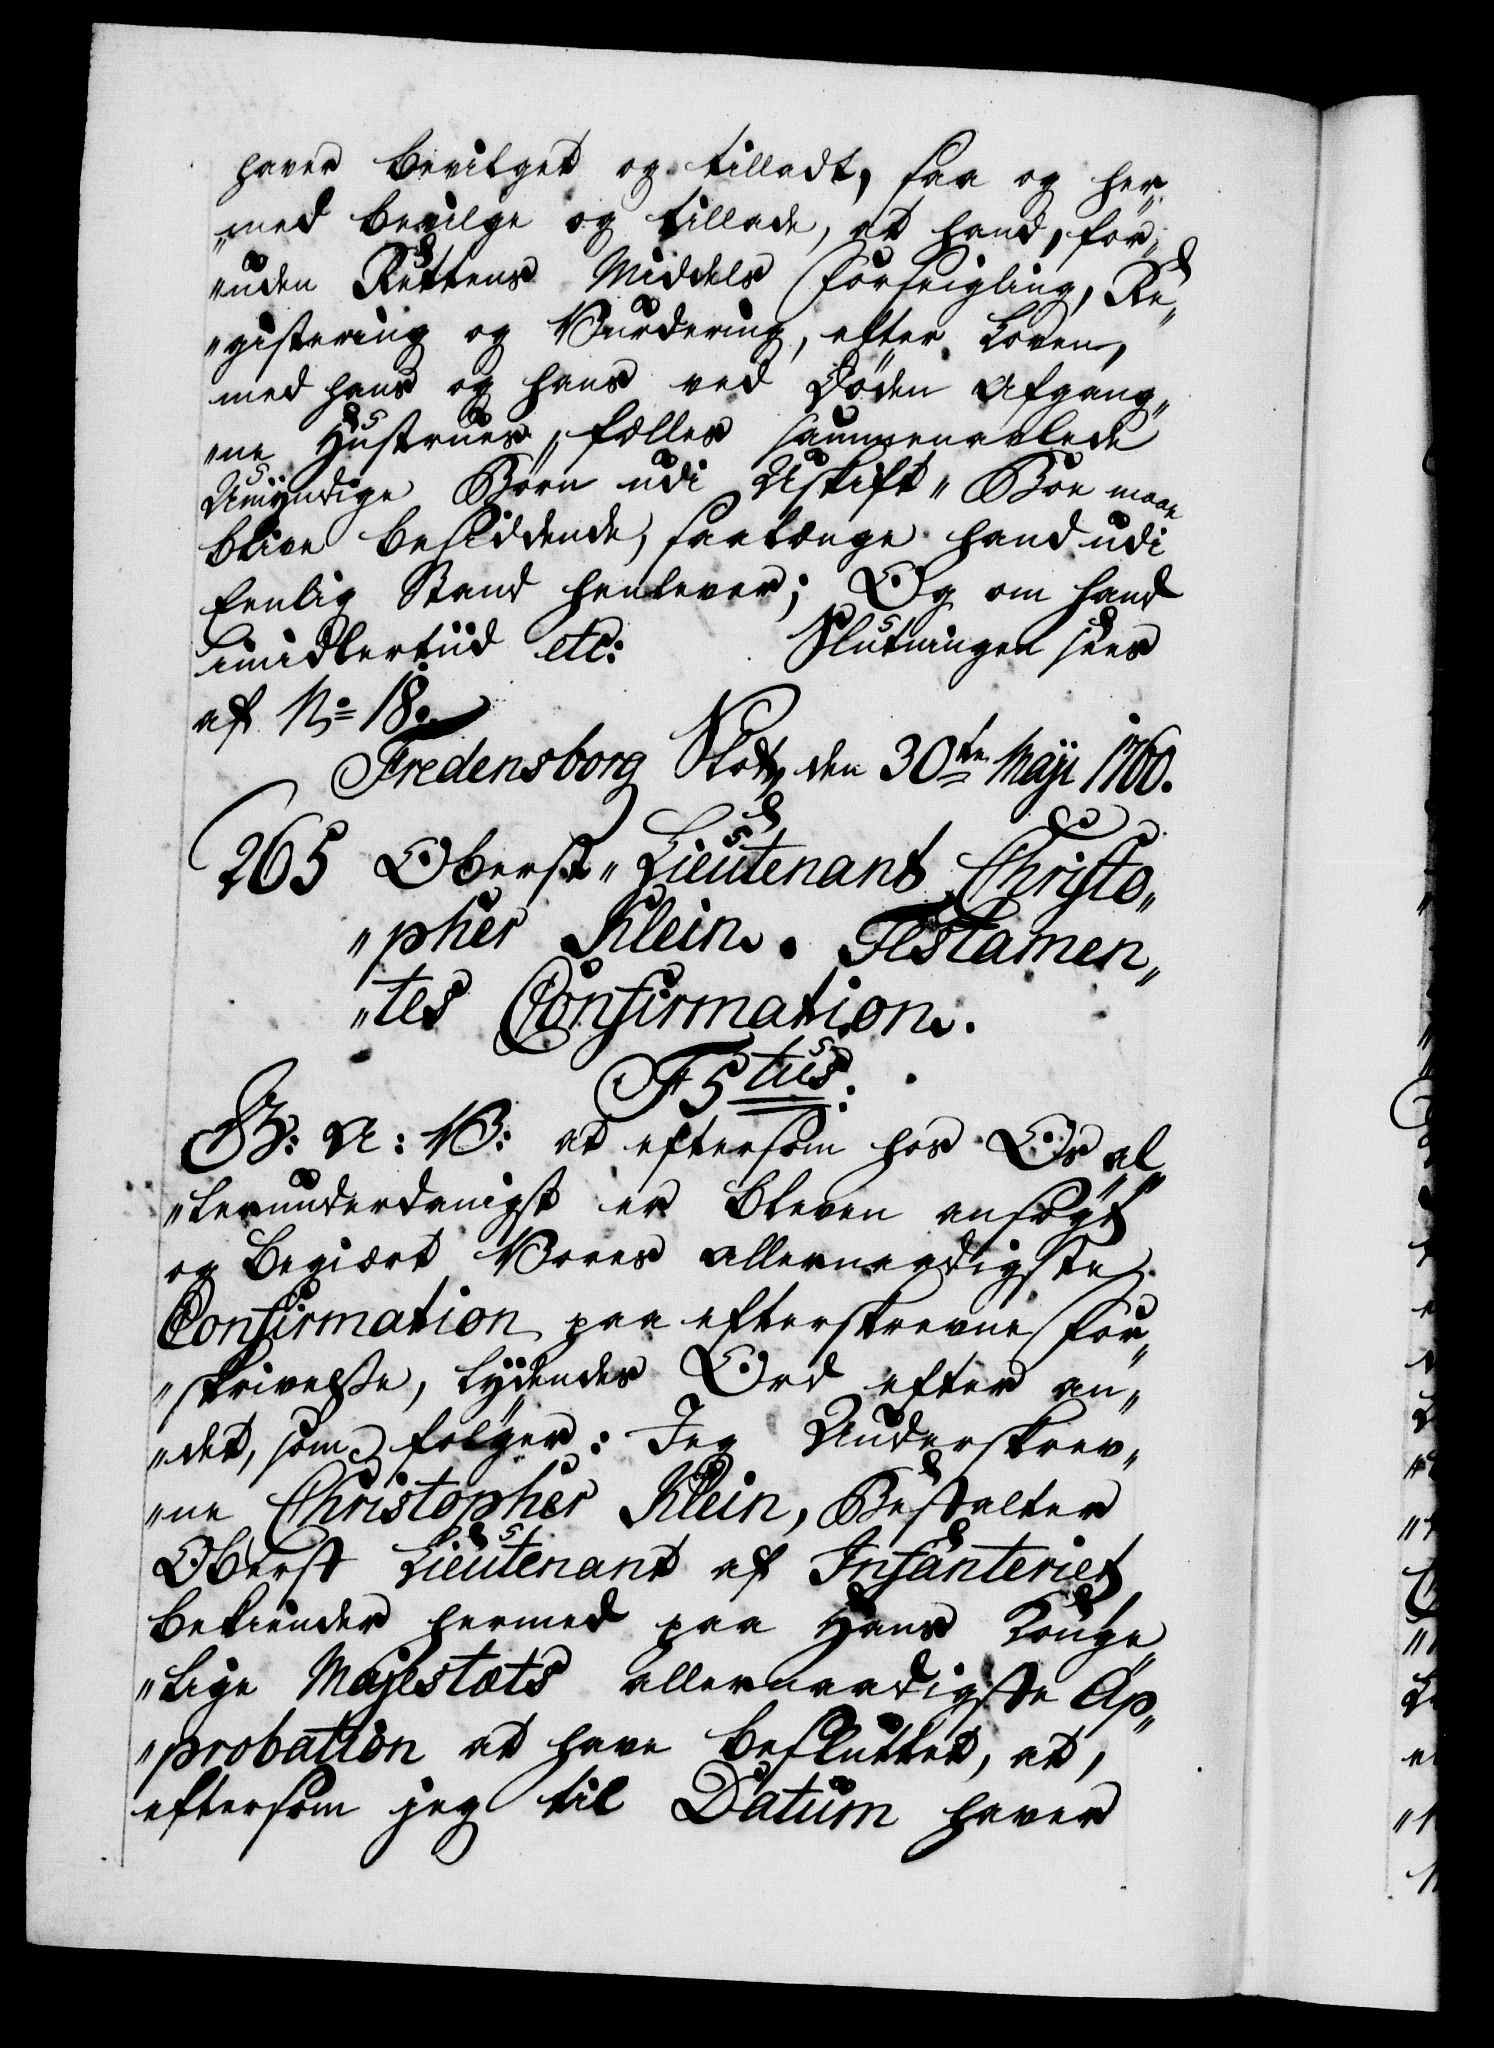 haver bevilget og tilladt, saa og her„
„med bevilge og tillade, at hand, for„
„uden Rettens Middels Forseigling, Re„
„gistering og Vurdering, efter Loven,
med hans og hans ved Døden Afgang„
„ne Hustrues, fælles sammenavlede
Umyndige Børn udi Uskift„ Boe maae
blive besiddende, saalænge hand udi
Eenlig Stand henlever; Og om hand
imidlertiid etc: Slutningen sees
af No 18.
Fredensborg Slot, den 30te Maji 1760.
265 Oberst„ Lieutenant Christo„
„pher Klein. Testamen„
„tes Confirmation.
F 5tus:
G: A: V: at eftersom hos Os al„
„lerunderdanigst er bleven ansøgt
og begiært Vores allernaadigste
Confirmation paa efterskrevne For„
„skrivelse, lydendes Ord efter an„
„det, som følger: Jeg Underskrev„
„ne Christopher Klein, Bestalter
Oberst Lieutenant af Infanteriet
bekiender hermed paa Hans Konge„
„lige Majestæts allernaadigste Ap„
„probation at have besluttet, at,
eftersom jeg til Datum haver